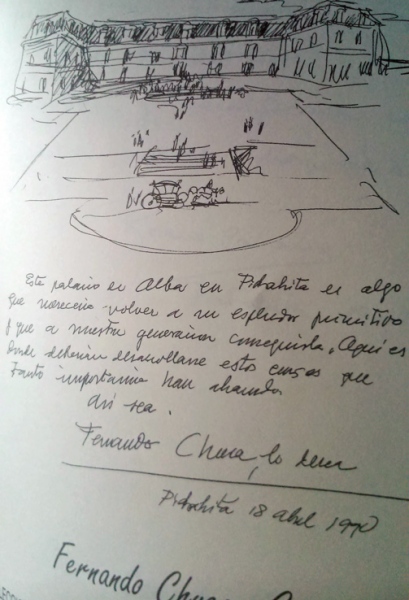 Este palacio de Alba en Piedrahita es algo
que merecería volver a su esplendor primitivo
y que a nuestra generación conseguirlo. Aquí es
donde deberían desarrollarse estos cursos que
tanta importancia han alcanzado
así sea.
Fernando Chueca, lo desea
Piedrahita 18 abril
Fernando Chueca